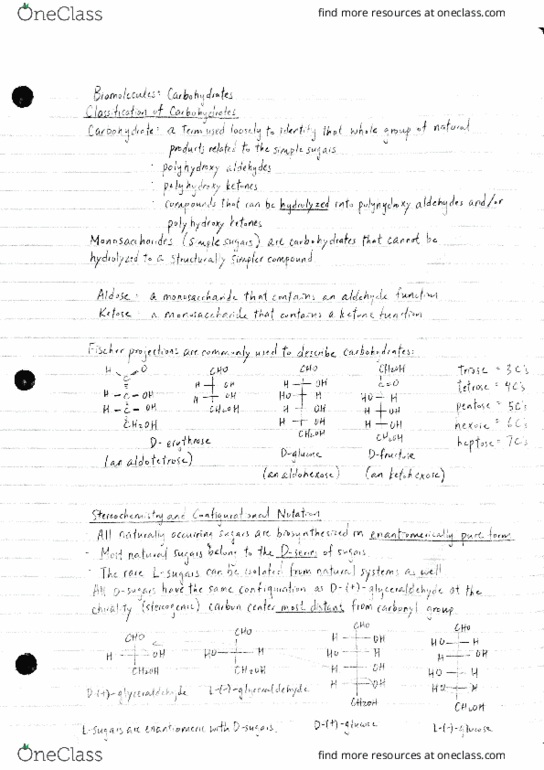 OneClass
find more resources at oneclass.com
Biomolecules: Carbohydrates
Classification of Carbohydrates
Carbohydrate: a term used loosely to identify that whole group of natural
products related to the simple sugars
· polyhydroxy aldehydes
· polyhydroxy ketones
· compounds that can be hydrolyzed into polyhydroxy aldehydes and/or
polyhydroxy ketones
Monosaccharides (simple sugars) are carbohydrates that cannot be
hydrolyzed to a structurally simpler compound
Aldose: a monosaccharide that contains an aldehyde function
Ketose: a monosaccharide that contains a ketone function
Fischer projections are commonly used to describe carbohydrates:
H O CHO CHO CH2OH triose = 3C's
C H OH H OH C=O tetrose = 4C's
H-C-OH H OH HO H HO H pentose = 5C's
H-C-OH CH2OH H OH H OH hexose = 6C's
CH2OH H OH H OH heptose = 7C's
CH2OH CH2OH
D-erythrose D-glucose D-fructose
(an aldotetrose) (an aldohexose) (an ketohexose)
Stereochemistry and Configurational Notation
· All naturally occurring sugars are biosynthesized in enantiomerically pure form
· Most natural sugars belong to the D-series of sugars
· The rare L-sugars can be isolated from natural systems as well
All D-sugars have the same configuration as D-(+)-glyceraldehyde at the
chirality (stereogenic) carbon center most distant from carbonyl group.
CHO CHO CHO CHO
H OH HO H H OH HO H
CH2OH CH2OH HO H H OH
H OH HO H
H OH HO H
CH2OH CH2OH
D-(+)-glyceraldehyde L-(-)-glyceraldehyde
L-sugars are enantiomeric with D-sugars. D-(+)-glucose L-(-)-glucose
OneClass
find more resources at oneclass.com